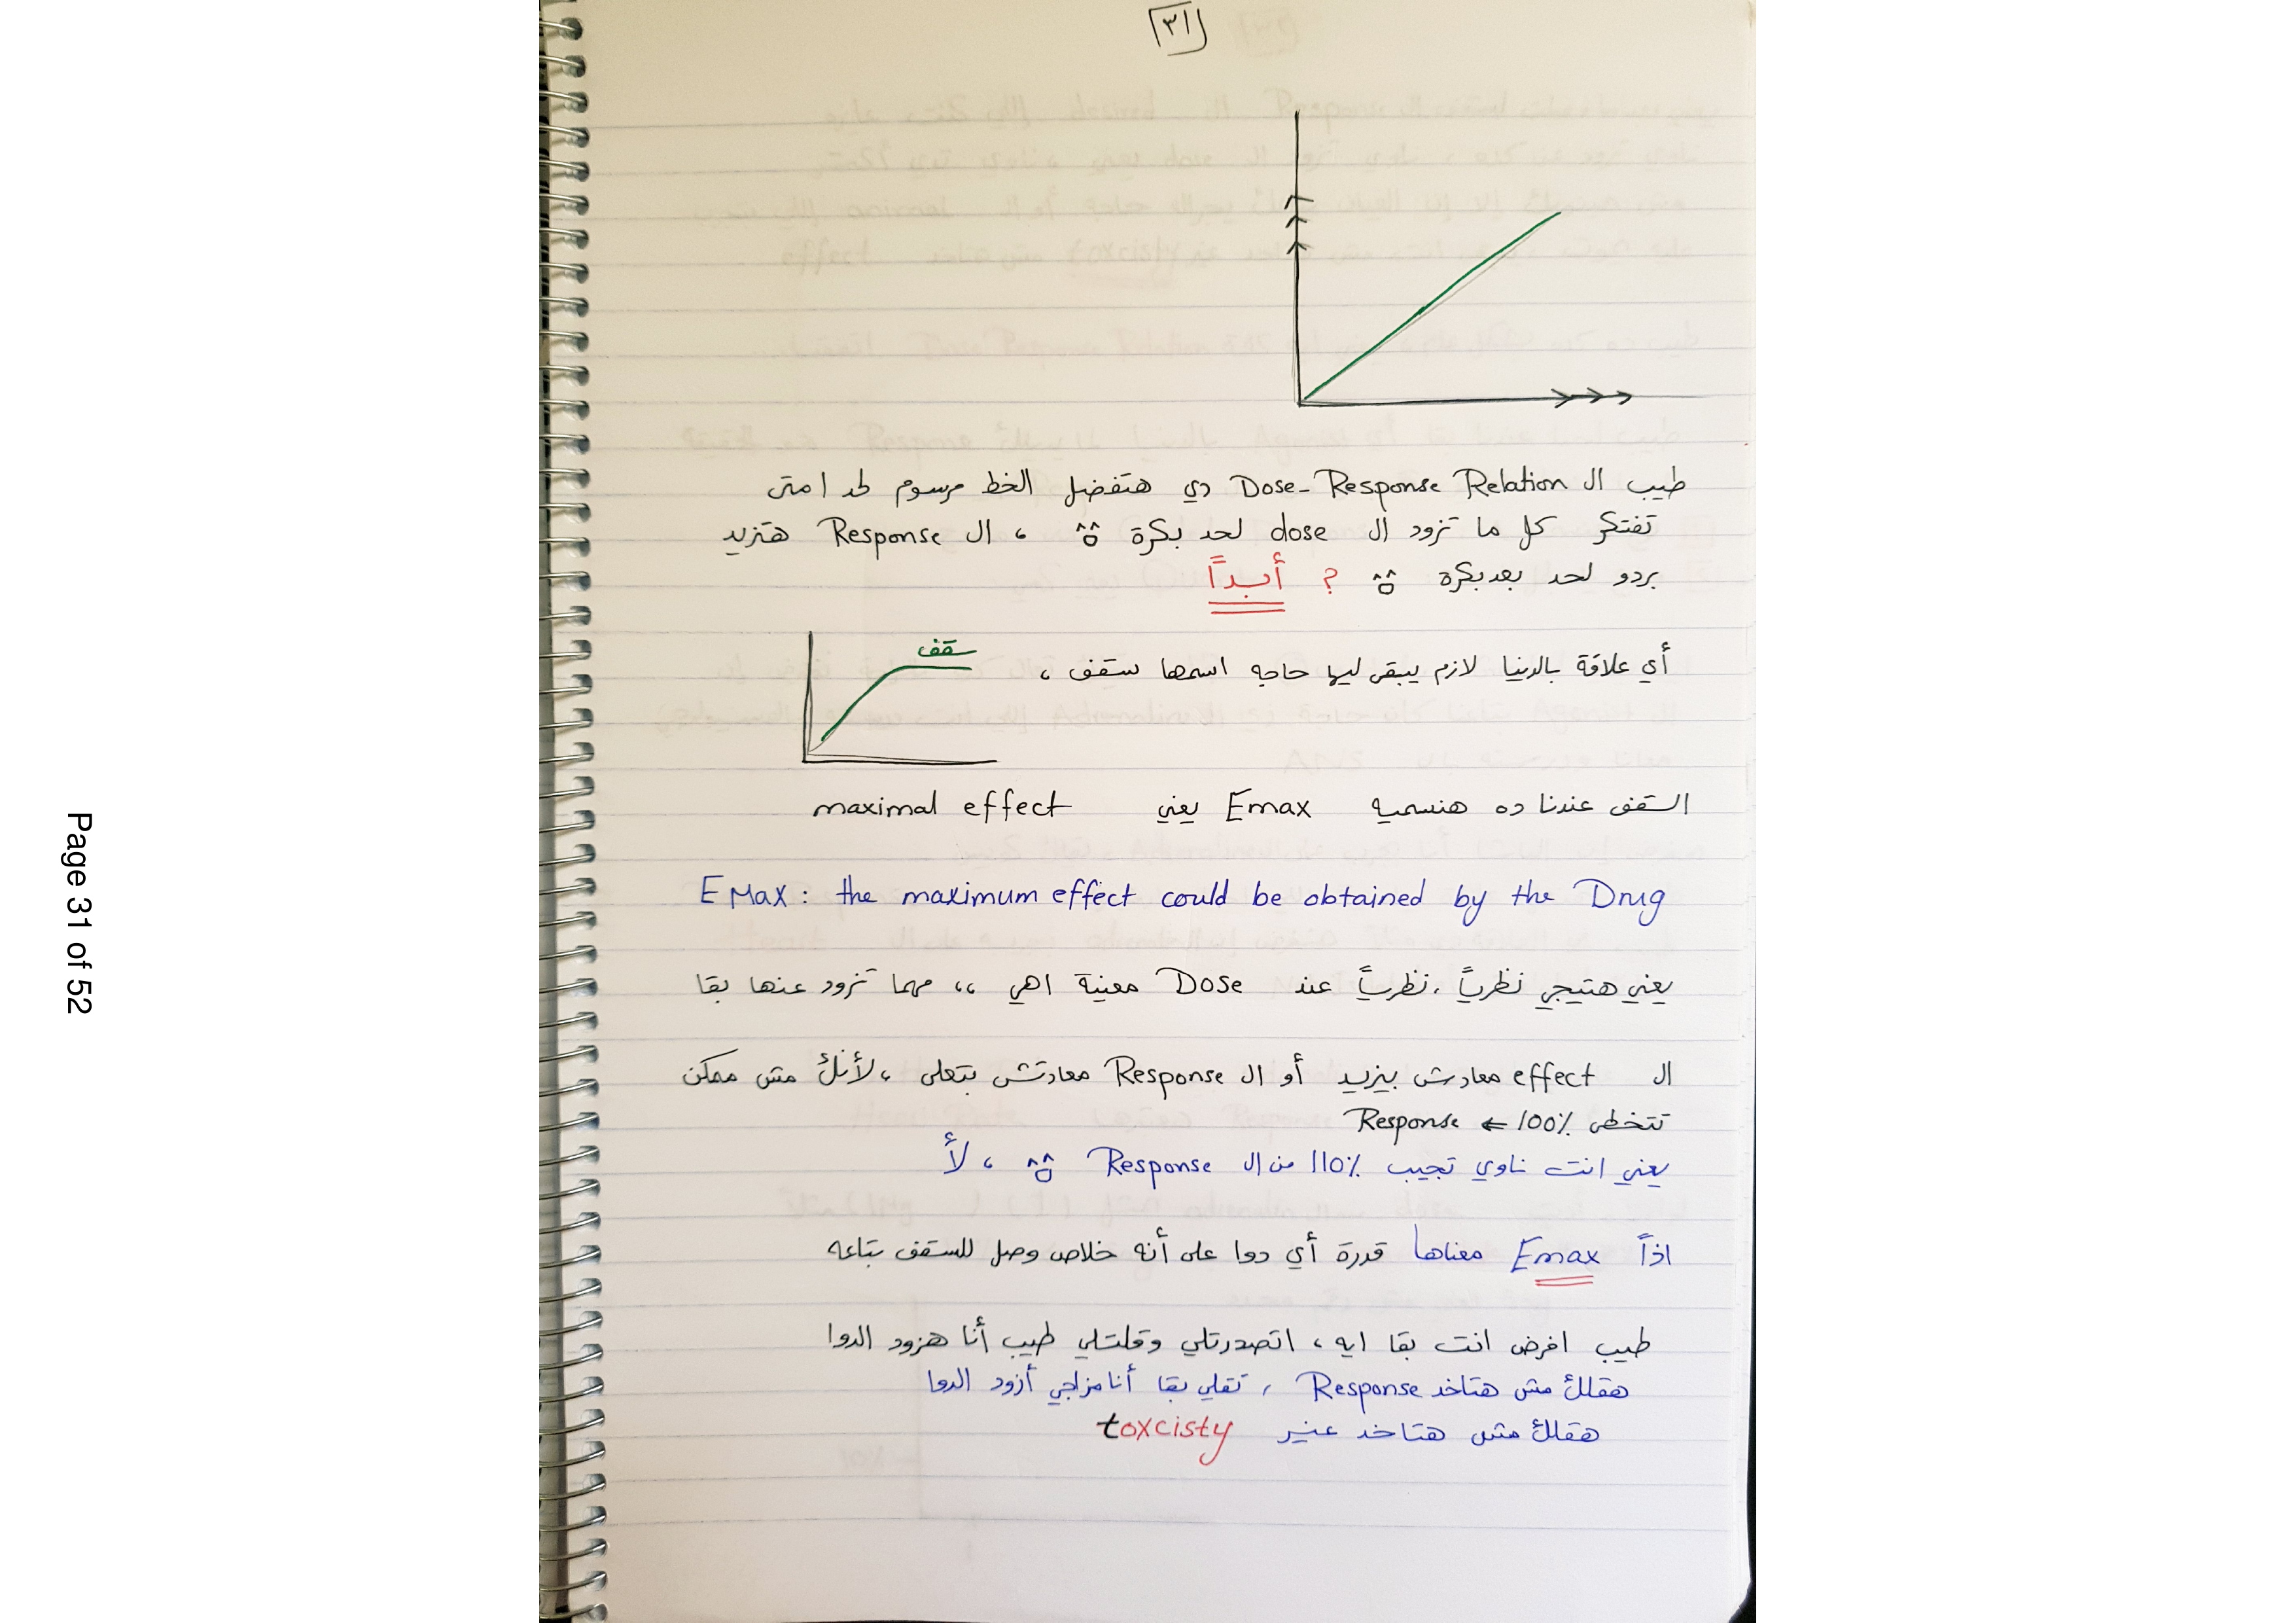 ٣١
طيب ال Dose-Response Relation دي هتفضل الخط مرسوم لحد امتى
تفتكر كل ما تزود ال dose لحد بكرة ، ال Response هتزيد
بردو لحد بعد بكرة ؟ أبداً
سقف
أي علاقة بالدنيا لازم يبقى ليها حاجه اسمها سقف ،
السقف عندنا ده هنسميه Emax يعني maximal effect
EMax: the maximum effect could be obtained by the Drug
يعني هتيجي نظرياً ، نظرياً عند Dose معينة اهي ،، مهما تزود عنها بقا
ال effect معادش بيزيد أو ال Response معادتش بتعلى ، لأنك مش ممكن
تتخطى 100% ← Response
يعني انت ناوي تجيب 110% من ال Response ، لأ
اذاً Emax معناها قدرة أي دوا على أنه خلاص وصل للسقف بتاعه
طيب افرض انت بقا ايه ، اتصدرتلي وقلتلي طيب أنا هزود الدوا
هقلك مش هتاخد Response ، تقلي بقا أنا مزاجي أزود الدوا
هقلك مش هتاخد غير toxcisty
Page 31 of 52